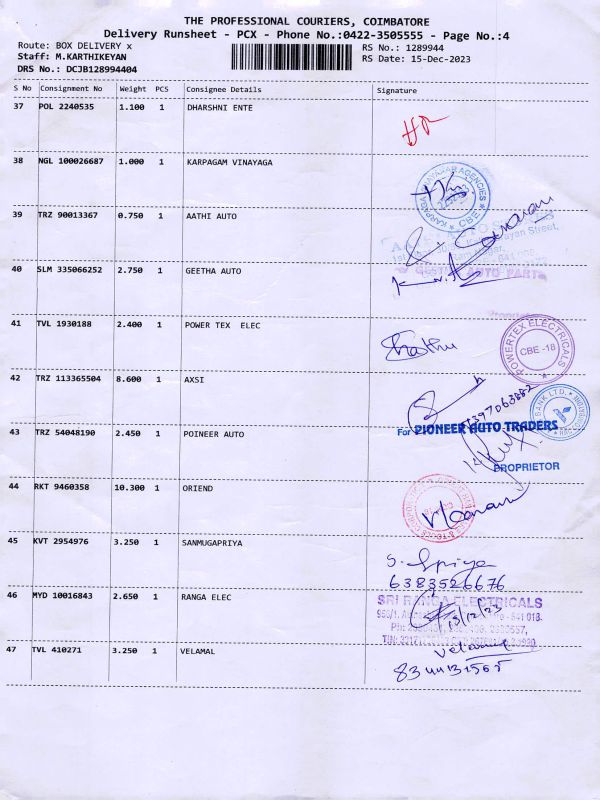 THE PROFESSIONAL COURIERS, COIMBATORE
Delivery Runsheet - PCX - Phone No.:0422-3505555 - Page No.:4
Route: BOX DELIVERY x
RS No.: 1289944
Staff: M.KARTHIKEYAN
RS Date: 15-Dec-2023
DRS No.: DCJB128994404
S No Consignment No Weight PCS Consignee Details Signature
37 POL 2240535 1.100 1 DHARSHNI ENTE
38 NGL 100026687 1.000 1 KARPAGAM VINAYAGA
39 TRZ 90013367 0.750 1 AATHI AUTO
40 SLM 335066252 2.750 1 GEETHA AUTO
41 TVL 1930188 2.400 1 POWER TEX ELEC
POWERTEX ELECTRICALS
CBE -18
42 TRZ 113365504 8.600 1 AXSI
BANK LTD.
For PIONEER AUTO TRADERS
43 TRZ 54048190 2.450 1 POINEER AUTO
PROPRIETOR
44 RKT 9460358 10.300 1 ORIEND
45 KVT 2954976 3.250 1 SANMUGAPRIYA
S. Spriya
6383526676
46 MYD 10016843 2.650 1 RANGA ELEC
SRI RANGA ELECTRICALS
15/12/23
47 TVL 410271 3.250 1 VELAMAL